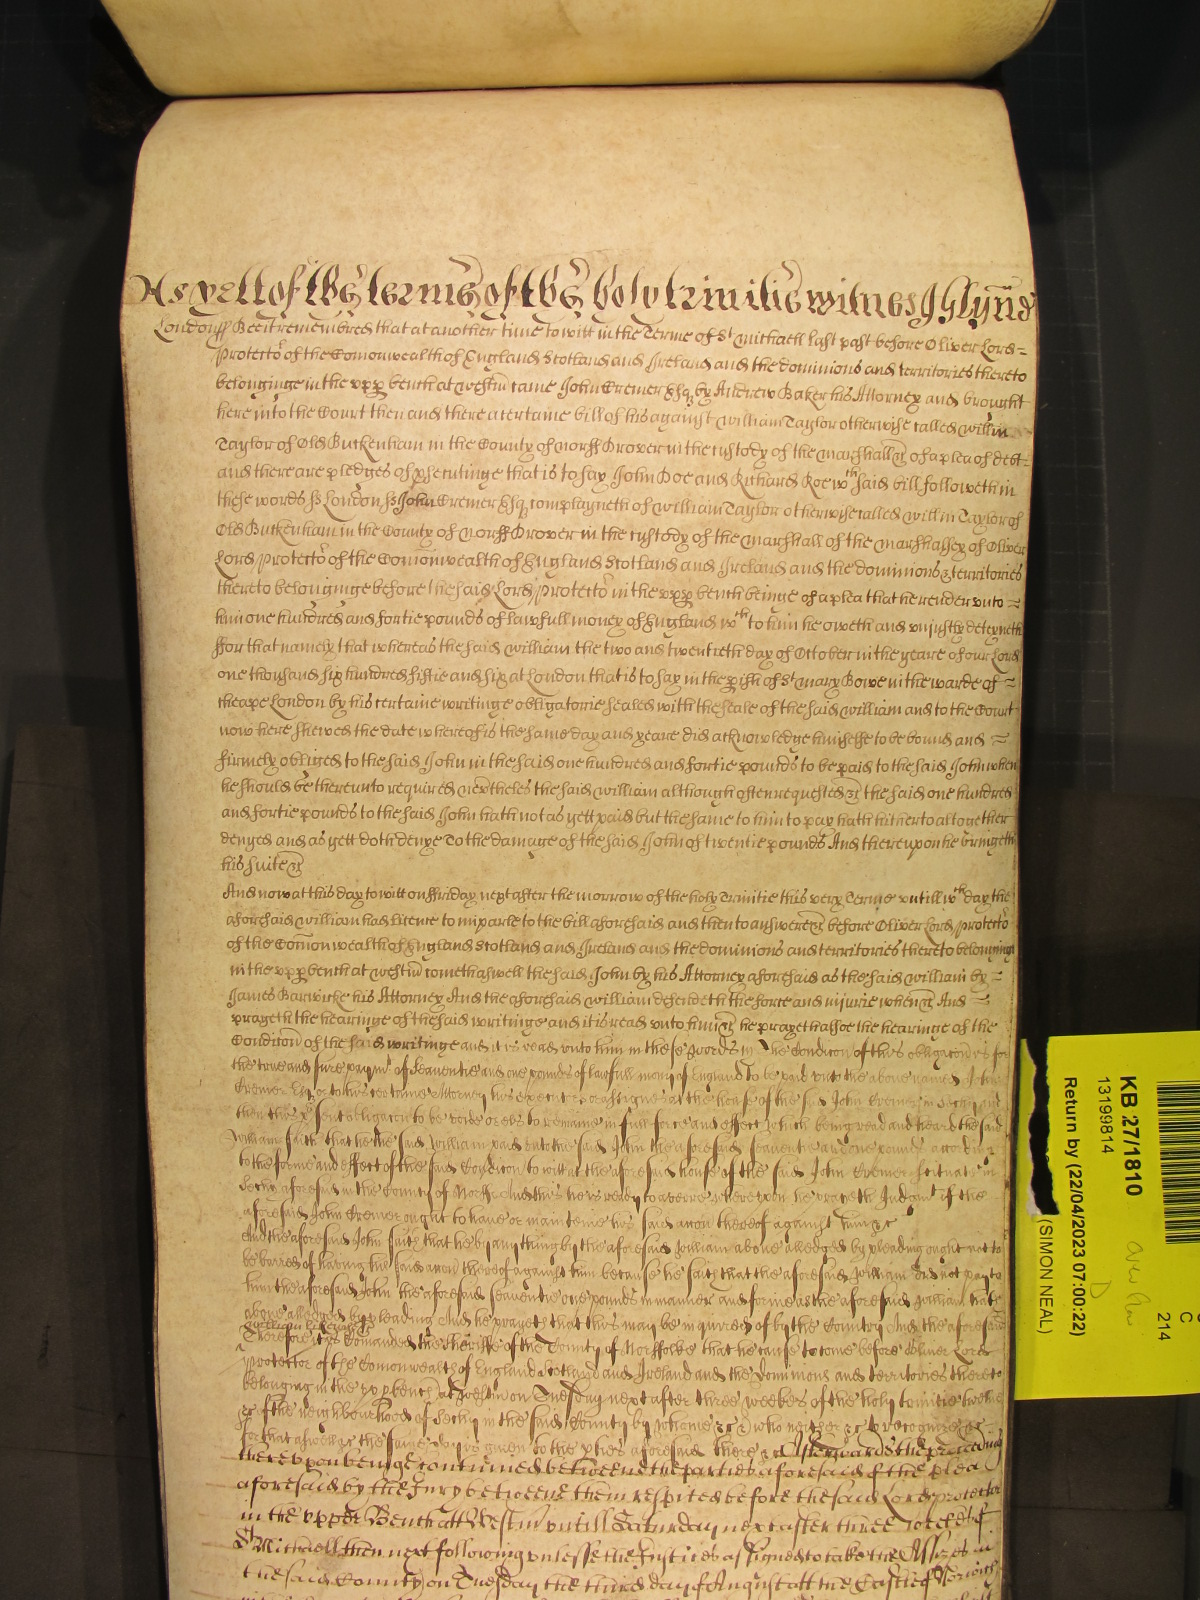 As yett of the terme of the holy trinitie witnes
London ss Bee it remembred that at another time to witt in the Terme of St Michaell last past before Oliver Lord
Protector of the Comonwealth of England Scotland and Ireland and the dominions and territories thereto
belonginge in the upp bench at Westm came John Cremer Esq by Andrew Baker his Attorney and brought
here into the Court then and there a certaine bill of his against William Taylor otherwise called Willm
Taylor of Old Buckenham in the County of Norff Drover in the custody of the marshall &c of a plea of debt
and there are pledges of prsecutinge that is to say John Doe and Richard Roe wch said bill followeth in
these words ss London ss John Cremer Esq complayneth of William Taylor otherwise called Willm Taylor of
Old Buckenham in the County of Norff Drover in the custody of the marshall of the marshalsey of Oliver
Lord Protector of the Comonwealth of England Scotland and Ireland and the dominions & territories
thereto belonginge before the said Lord Protector in the upp bench beinge of a plea that he render unto
him one hundred and fortie pounds of lawfull money of England wch to him he oweth and unjustly deteyneth
ffor that namely that whereas the said William the two and twentieth day of October in the yeare of our Lord
one thousand six hundred fiftie and six at London that is to say in the pish of St Mary Bowe in the warde of
Cheape London by his certaine writinge obligatorie sealed with the seale of the said William and to the Court
now here shewed the date whereof is the same day and yeare did acknowledge himselfe to be bound and
firmely obliged to the said John in the said one hundred and fortie pounds to be paid to the said John when
he should be thereunto required nevtheles the said William although often requested &c the said one hundred
and fortie pounds to the said John hath not as yett paid but the same to him to pay hath hitherto altogether
denyed and as yett doth denye To the damage of the said John of twentie pounds And thereupon he bringeth
his suite &c
And now at this day to witt on ffriday next after the morrow of the holy Trinitie this very Terme untill wch day the
aforesaid William had licence to imparle to the bill aforesaid and then to answere &c before Oliver Lord Protector
of the Comonwealth of England Scotland and Ireland and the dominions and territories thereto belonginge
in the upp bench at Westm cometh aswell the said John by his Attorney aforesaid as the said William by
James Barwicke his Attorney And the aforesaid William defendeth the force and injurie when &c And
prayeth the hearinge of the said writinge and it is read unto him &c he prayeth alsoe the hearinge of the
Condition of the said writinge and it is read unto him in these words ss The Condicon of this obligation is for
the true and sure paymt of seaventie and one pounds of lawfull mony of England to be paid unto the above named John
Cremer Esq or to his certaine Attorney his executors or assignes at the house of the said John Cremer in
then this psent obligacon to be voide or els to remaine in full force and effect which being read and heard the said
William saith that hee the said William paid unto the said John the aforesaid seaventie and one pounds according
to the forme and effect of the said Condicon to wit at the aforesaid house of the said John Cremer scituate in
aforesaid in the County of Norff And this he is ready to averre whereupon he prayeth Judgmt if the
aforesaid John Cremer ought to have or maintaine his said accon thereof against him &c
And the aforesaid John saith that he by any thing by the aforesaid William above alledged by pleading ought not to
be barred of having his said accon thereof against him because he saith that the aforesaid William did not pay to
him the aforesaid John the aforesaid seaventie one pounds in manner and forme as the aforesaid William hath
above alledged by pleading And he prayeth that this may be inquired of by the Country And the aforesaid
William likewise
Therefore it is Comanded the sheriffe of the County of Norffolke that he cause to come before Oliver Lord
Protector of the Comonwealth of England Scotland and Ireland and the dominions and territories thereto
belonging in the upp bench at Westm on Tuesday next after three weekes of the holy trinitie twelve
&c of the neighbourhood of in the said County by whome &c & who neither &c to recognize &c
for that aswell &c the same day is given to the pties aforesaid there &c Afterwards the proceeding
thereupon beinge continued betweene the parties aforesaid of the plea
aforesaid by the Jury betweene them respited before the said Lord protector
in the upper Bench att Westm untill Saturday next after three weekes of
St Michaell then next following unlesse the Justices assigned to take the Assizes in
the said County on Tuesday the third day of August att the Castle of Norwich
KB 27/1810
13199814
Return by (22/04/2023 07:00:22)
(SIMON NEAL)
C
214
D